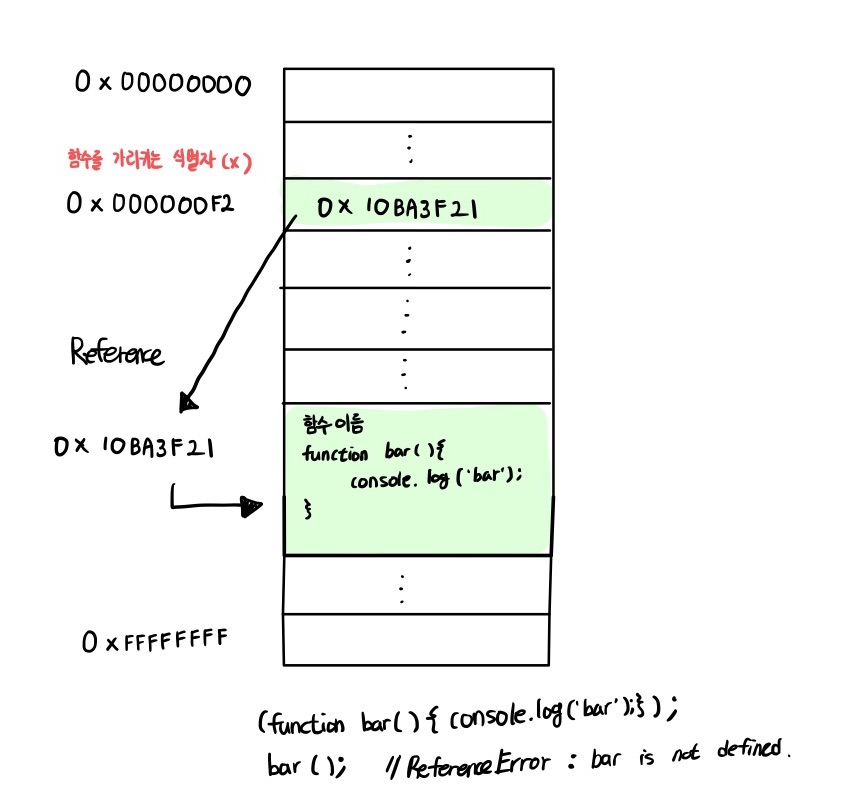 0x00000000
함수를 가리키는 식별자 (x)
0x000000F2
0x10BA3F21
Reference
함수 이름
function bar(){
console.log('bar');
}
0x10BA3F21
0xFFFFFFFF
(function bar(){ console.log('bar');});
bar(); //ReferenceError : bar is not defined.